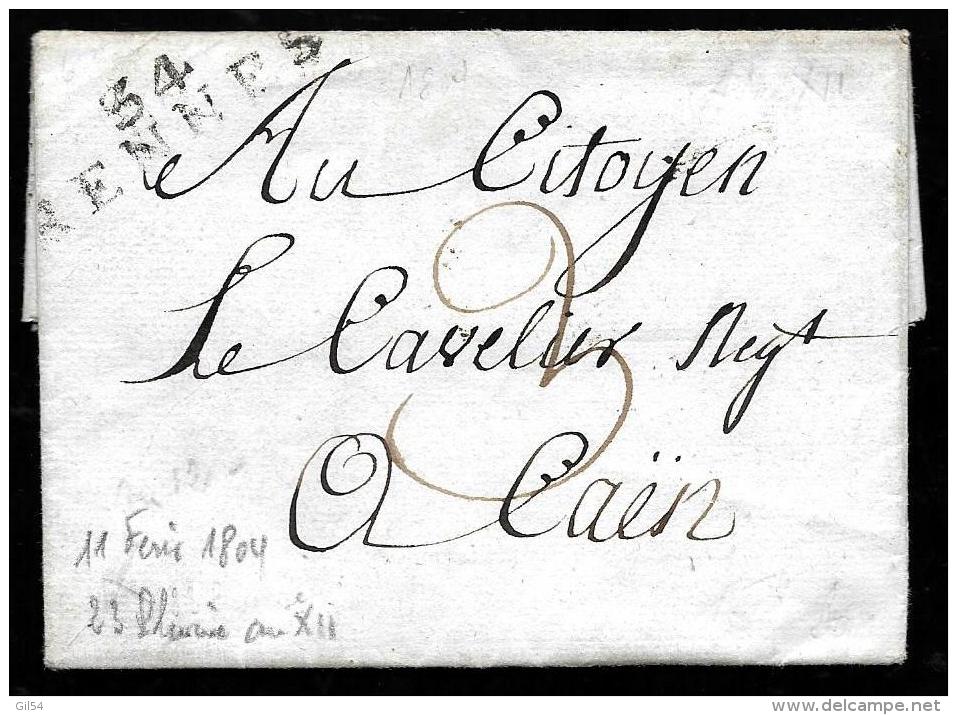 34
RENNES
Au Citoyen
Le Cavelier Negt
A Caën
3
11 Fevrier 1804
23 Pluviose an XII
Gil54
delcampe.net